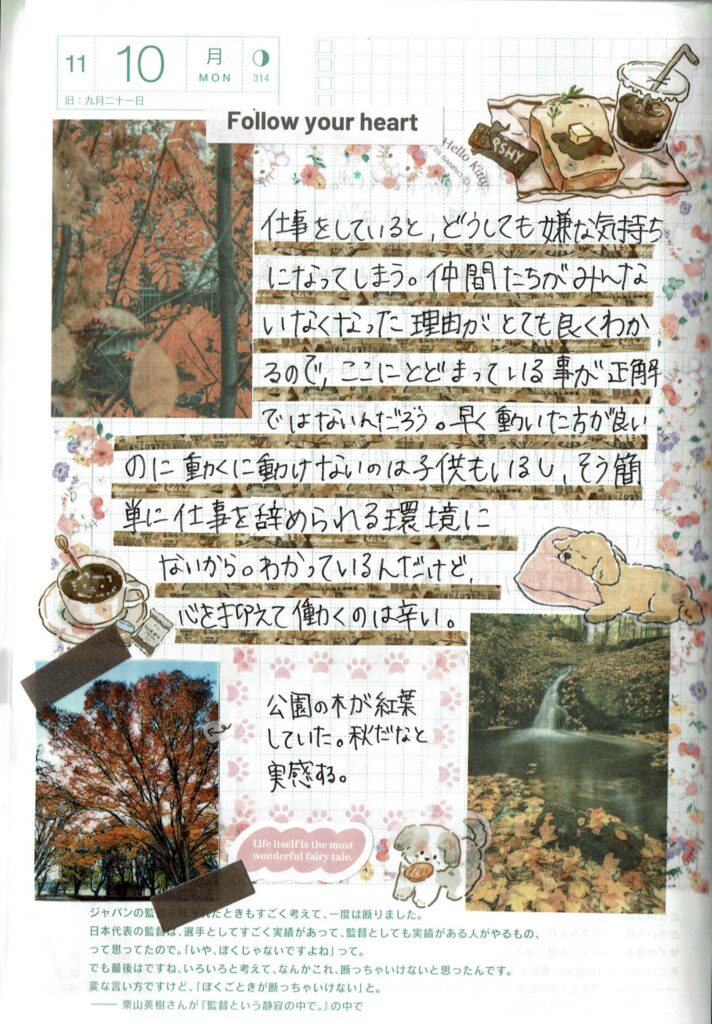 11
10
月
MON
314
旧：九月二十一日
Follow your heart
Hello Kitty
仕事をしていると、どうしても嫌な気持ち
になってしまう。仲間たちがみんな
いなくなった理由がとても良くわか
るので、ここにとどまっている事が正解
ではないんだろう。早く動いた方が良い
のに動くに動けないのは子供もいるし、そう簡
単に仕事を辞められる環境に
ないから。わかっているんだけど、
心を抑えて働くのは辛い。
公園の木が紅葉
していた。秋だなと
実感する。
Life itself is the most
wonderful fairy tale.
ジャパンの監 たときもすごく考えて、一度は断りました。
日本代表の監督は、選手としてすごく実績があって、監督としても実績がある人がやるもの、
って思ってたので。「いや、ぼくじゃないですよね」って。
でも最後はですね、いろいろと考えて、なんかこれ、断っちゃいけないと思ったんです。
変な言い方ですけど、「ぼくごときが断っちゃいけない」と。
—— 栗山英樹さんが『監督という静寂の中で。』の中で